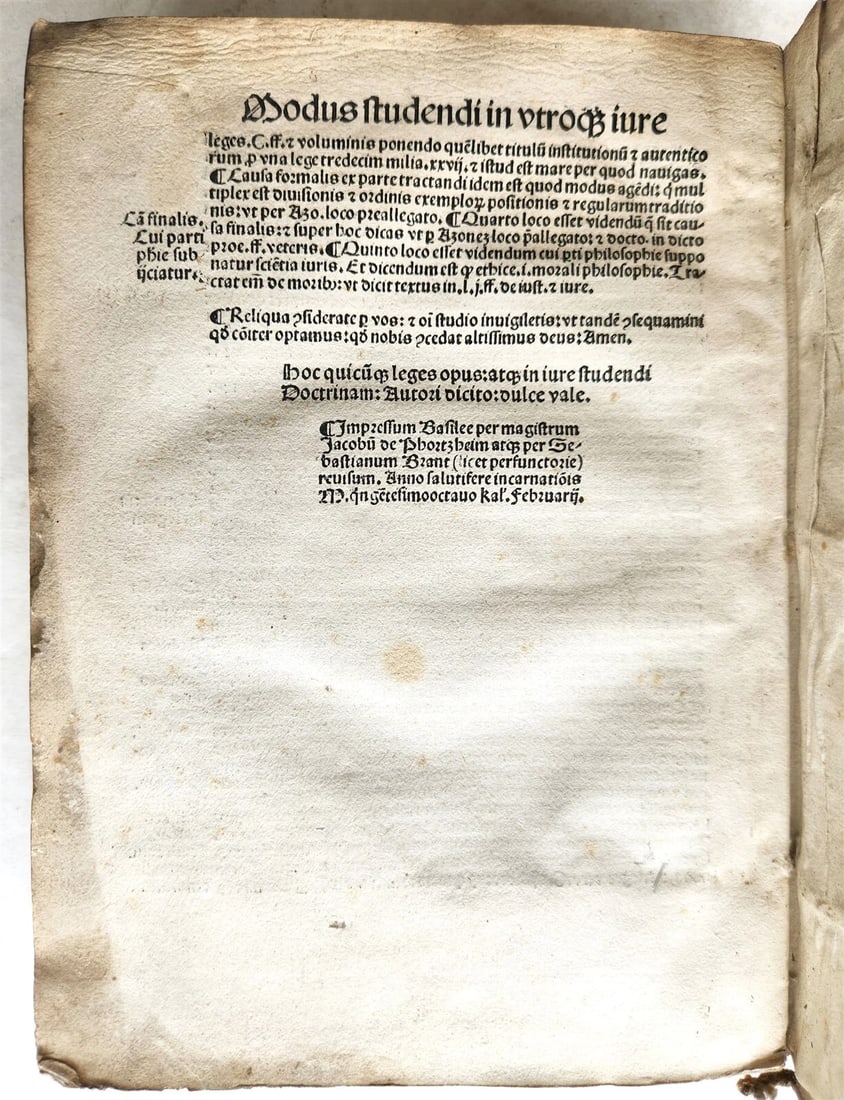 Modus studendi in vtroqꝫ iure
leges. C. ff. ⁊ voluminis ponendo quēlibet titulū institutionū ⁊ autentico
rum ꝑ vna lege tredecim milia. xxvij. ⁊ istud est mare per quod nauigas.
¶ Causa formalis ex parte tractandi idem est quod modus agēdi: q̇ mul
tiplex est diuisionis ⁊ ordinis exemploꝝ positionis ⁊ regularum traditio
nis: vt per Azo. loco preallegato. ¶ Quarto loco esset videndū q̇ sit cau-
Cā finalis.
sa finalis: ⁊ super hoc dicas vt ꝑ Azonez loco p̄allegato: ⁊ docto. in dicto
Cui parti
proe. ff. veteris. ¶ Quinto loco esset videndum cui ꝑti philosophie suppo
phie sub
natur sciētia iuris. Et dicendum est ꝙ ethice. i. morali philosophie. Tra-
ijciatur.
ctat em̄ de moribꝰ: vt dicit textus in. l. j. ff. de iust. ⁊ iure.
¶ Reliqua ꝯsiderate ꝑ vos: ⁊ oī studio inuigiletis: vt tandē ꝯsequamini
qd̄ cōiter optamus: qd̄ nobis ꝯcedat altissimus deus: Amen.
Hoc quicūqꝫ leges opus: atqꝫ in iure studendi
Doctrinam: Autori dicito: dulce vale.
¶ Impressum Basilee per magistrum
Jacobū de Phortzheim atqꝫ per Se-
bastianum Brant (licet perfunctorie)
reuisum. Anno salutifere incarnatiōis
M. q̇ngētesimooctauo kal'. Februarij.